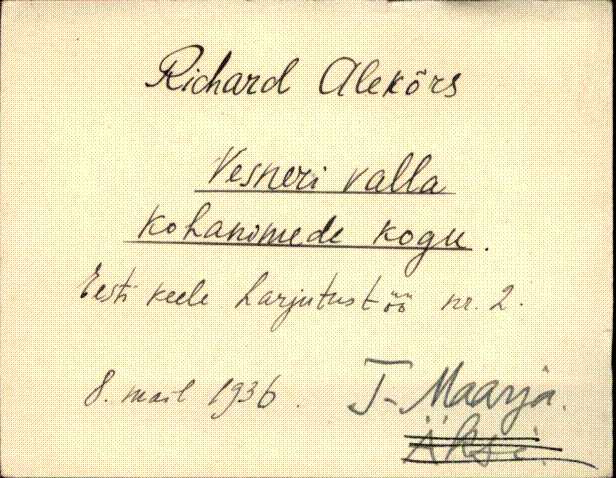 Richard Alekõrs
Vesneri valla
kohanimede kogu.
Eesti keele harjutustöö nr. 2.
8. mail 1936.
T-Maarja.
Äksi.